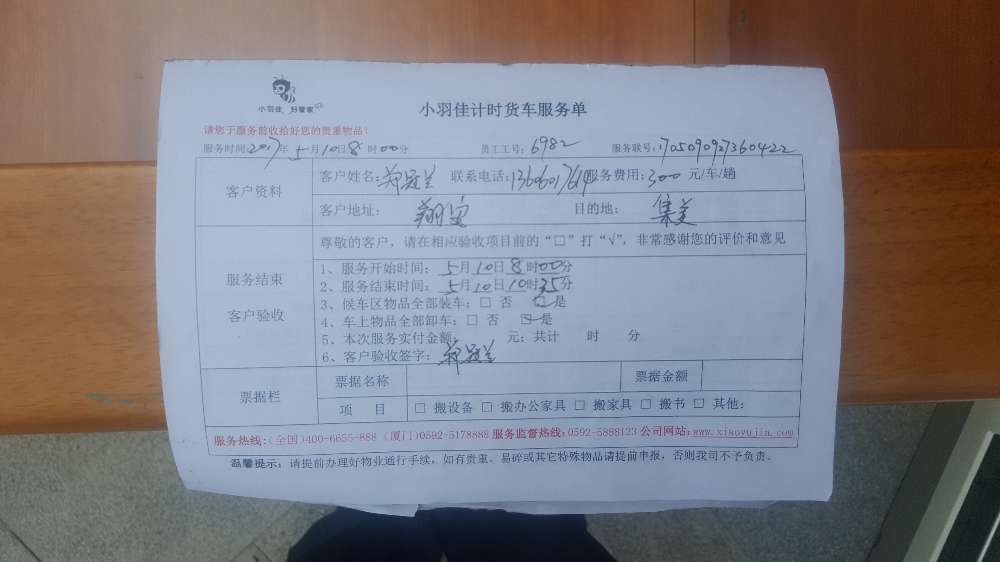 小羽佳 好管家
小羽佳计时货车服务单
请您于服务前收拾好您的贵重物品!
服务时间:2017年5月10日8时00分 员工工号:6982 服务联号:1705090927360422
客户资料
客户姓名: 联系电话: 服务费用:300元/车/趟
客户地址:翔安 目的地:集美
服务结束
客户验收
尊敬的客户,请在相应验收项目前的“□”打“√”,非常感谢您的评价和意见
1、服务开始时间:5月10日8时00分
2、服务结束时间:5月10日10时35分
3、候车区物品全部装车:□ 否 ☑是
4、车上物品全部卸车:□ 否 ☑是
5、本次服务实付金额: 元;共计 时 分
6、客户验收签字:
票据栏
票据名称 票据金额
项 目 □ 搬设备 □ 搬办公家具 □ 搬家具 □ 搬书 □ 其他:
服务热线:(全国)400-6655-888 (厦门)0592-5178888 服务监督热线:0592-5888123 公司网站:www.xiaoyujia.com
温馨提示:请提前办理好物业通行手续,如有贵重、易碎或其它特殊物品请提前申报,否则我司不予负责。